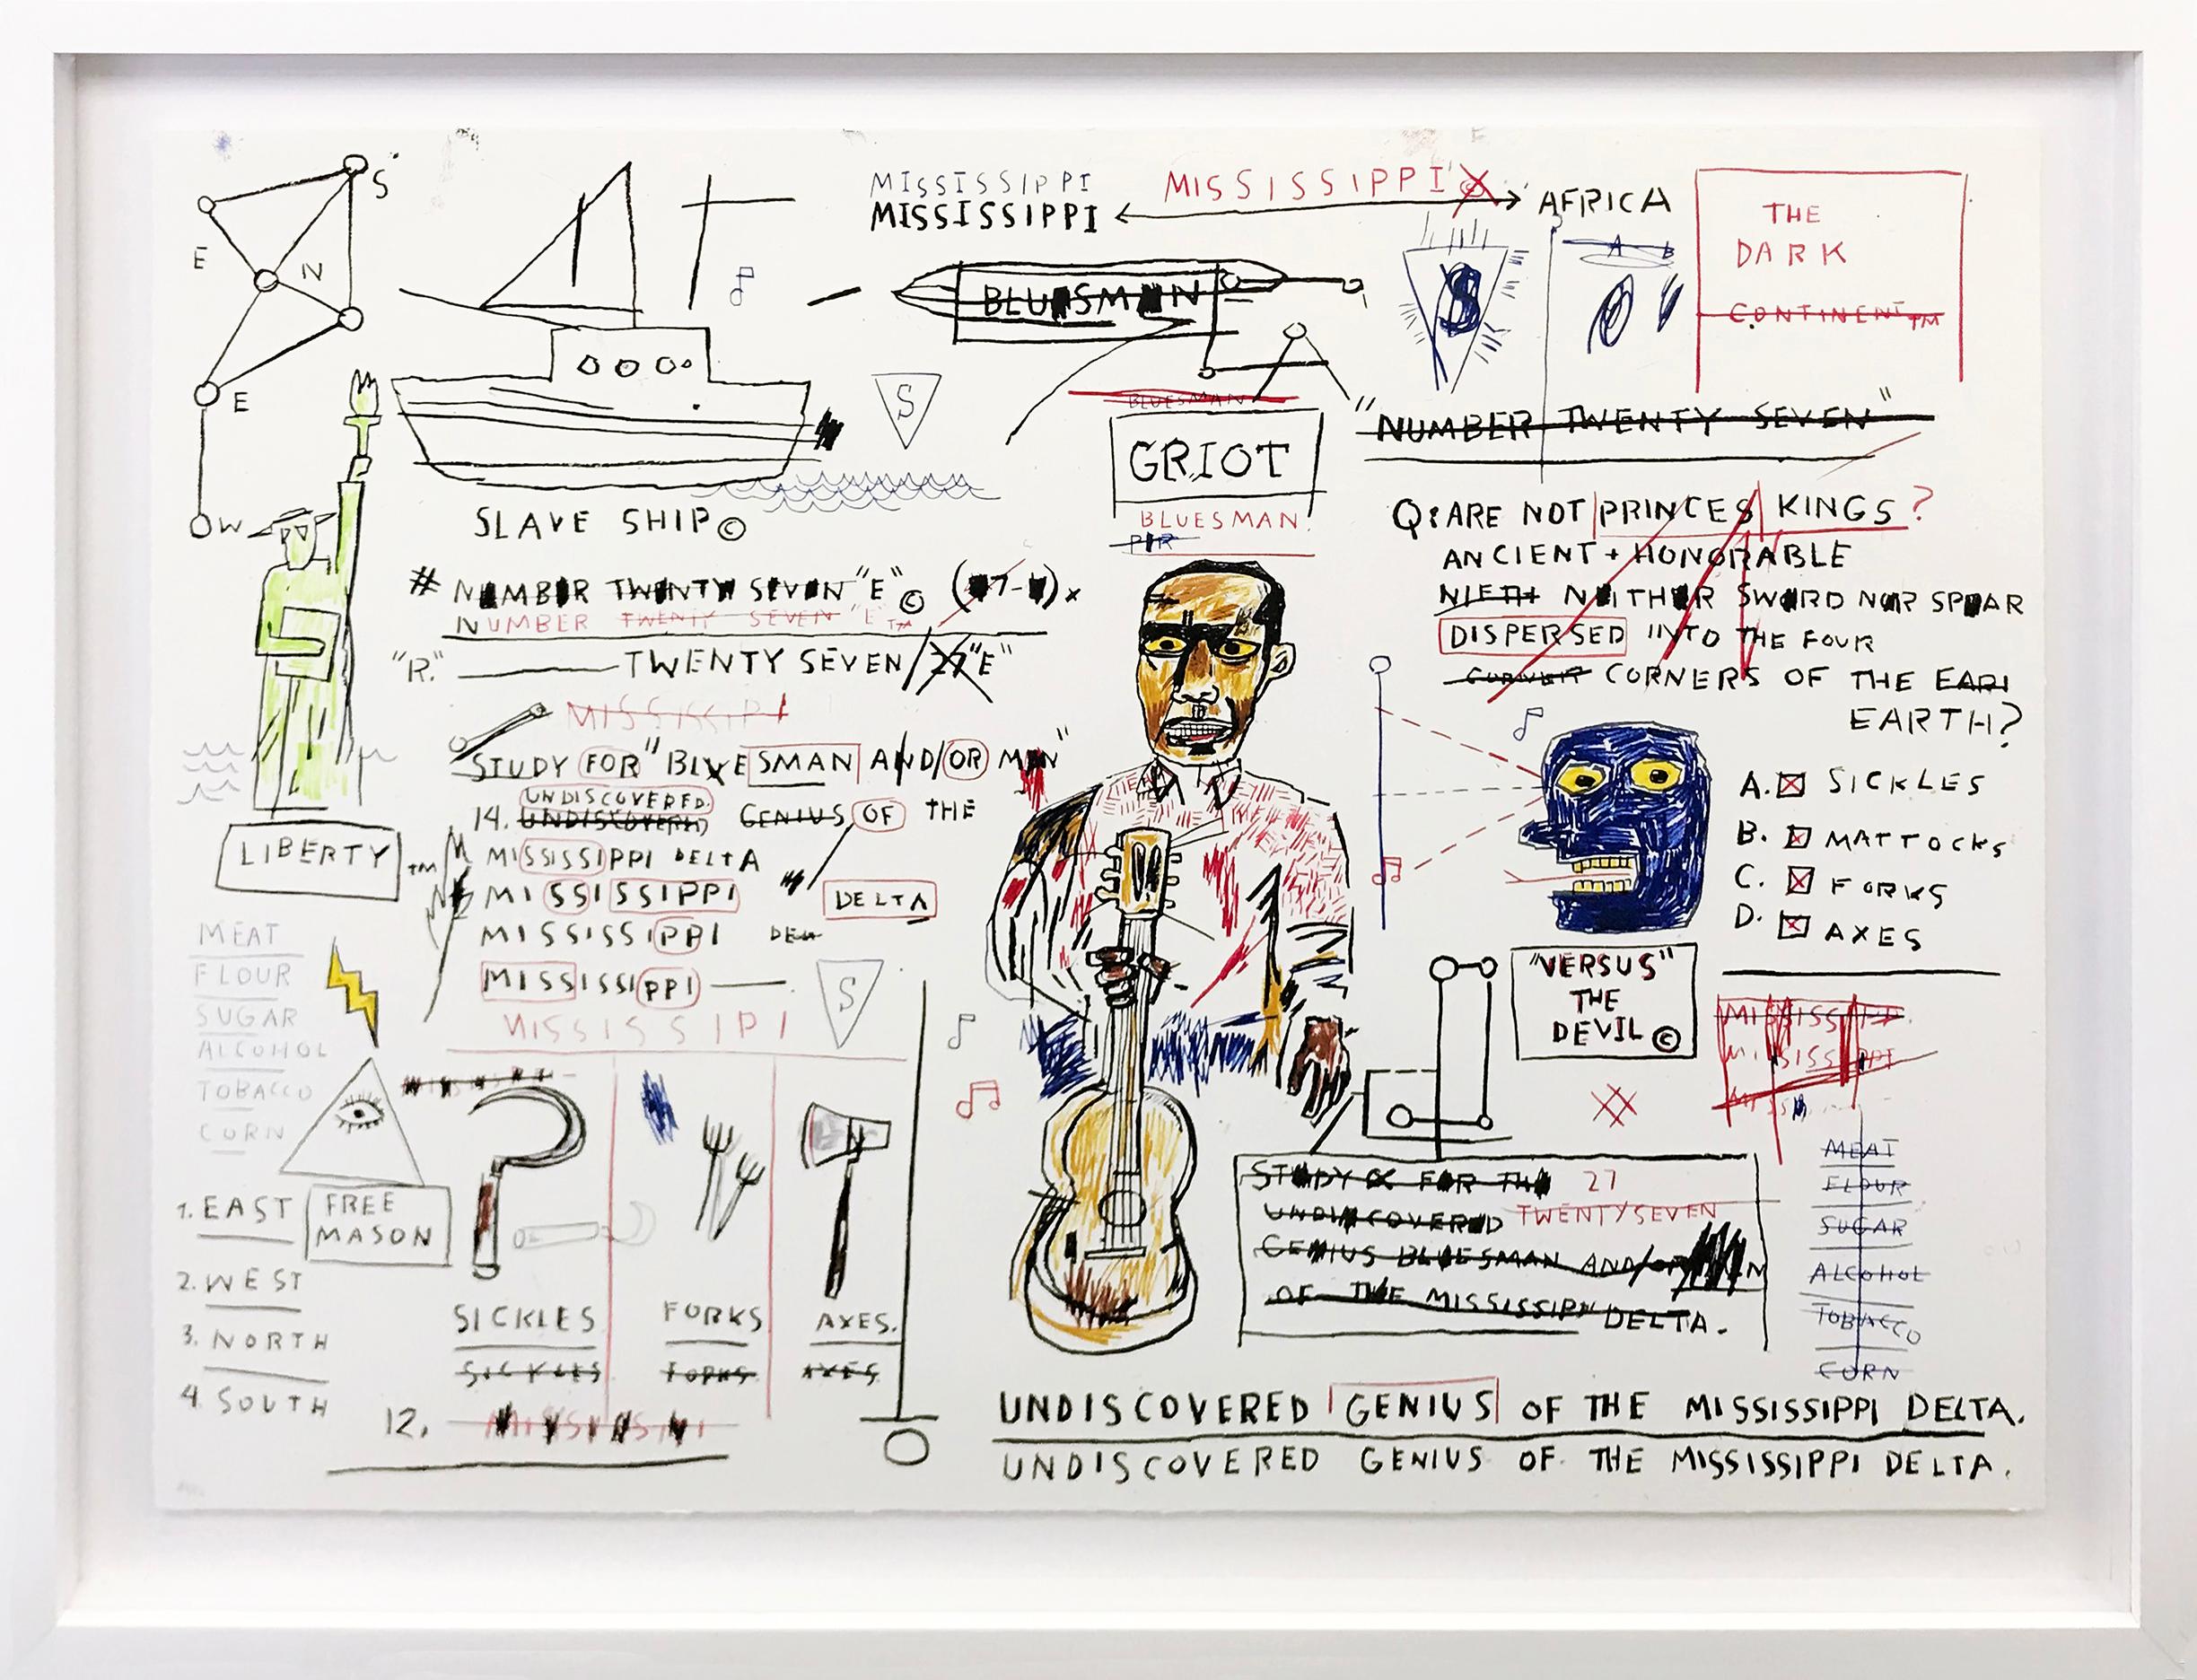 S
E
N
E
W
MISSISSIPPI
MISSISSIPPI
MISSISSIPPI
AFRICA
THE
DARK
CONTINENT TM
A B
S
BLUESMAN
S
BLUESMAN
GRIOT
BLUESMAN
"NUMBER TWENTY SEVEN"
SLAVE SHIP©
# NUMBER TWENTY SEVEN "E"©
NUMBER TWENTY SEVEN "E" TM
"R." TWENTY SEVEN/27 "E"
MISSISSIPI
STUDY FOR "BLUESMAN AND/OR MAN"
UNDISCOVERED
14. UNDISCOVERED GENIUS OF THE
MISSISSIPPI DELTA
MISSISSIPPI DELTA
MISSISSIPPI
MISSISSIPPI
MISSISSIPI
S
LIBERTY TM
MEAT
FLOUR
SUGAR
ALCOHOL
TOBACCO
CORN
FREE
MASON
1. EAST
2. WEST
3. NORTH
4. SOUTH
SICKLES
SICKLES
FORKS
FORKS
AXES.
AXES
12.
Q: ARE NOT PRINCES KINGS?
ANCIENT + HONORABLE
NIETH NEITHER SWORD NOR SPEAR
DISPERSED INTO THE FOUR
CORNER CORNERS OF THE EARI
EARTH?
A. SICKLES
B. MATTOCKS
C. FORKS
D. AXES
"VERSUS"
THE
DEVIL©
MISSISSIPPI
MISSISSIPPI
MEAT
FLOUR
SUGAR
ALCOHOL
TOBACCO
CORN
STUDY FOR THE 27
UNDISCOVERED TWENTYSEVEN
GENIUS BLUESMAN AND/OR
OF THE MISSISSIPPI DELTA.
UNDISCOVERED GENIUS OF THE MISSISSIPPI DELTA.
UNDISCOVERED GENIUS OF THE MISSISSIPPI DELTA.